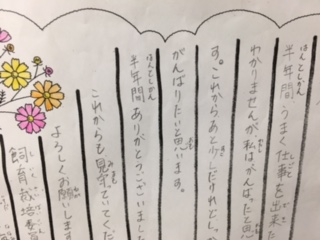 半年間、うまく仕事を出来た
わかりませんが私はがんばったと思
す。これからあと少しだけれどしっか
がんばりたいと思います。
半年間ありがとうございました
これからも見守っていてくだ
よろしくお願いします
飼育栽培委